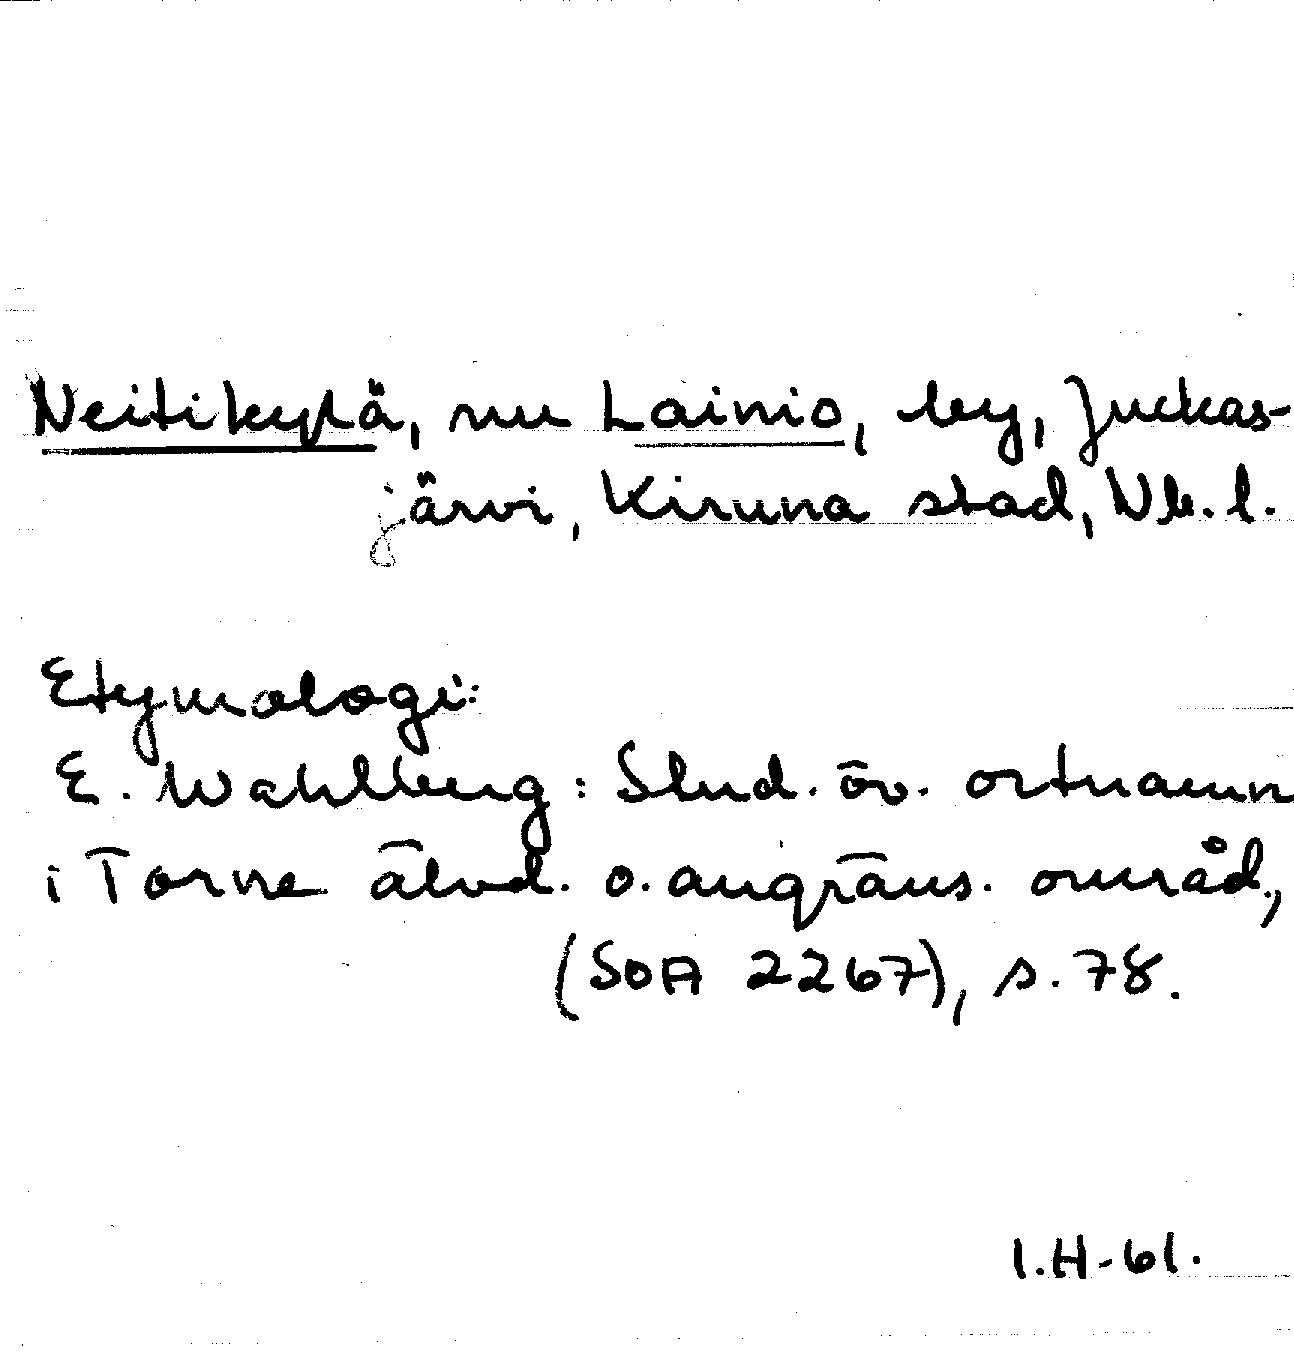 Neitikylä, nu Lainio, by, Juckas-
järvi, Kiruna stad, Nb. l.
Etymologi:
E. Wahlberg: Stud. öv. ortnamn
i Torne älvd. o. angräns. områd.,
(SOA 2267), s. 78.
I.H-61.